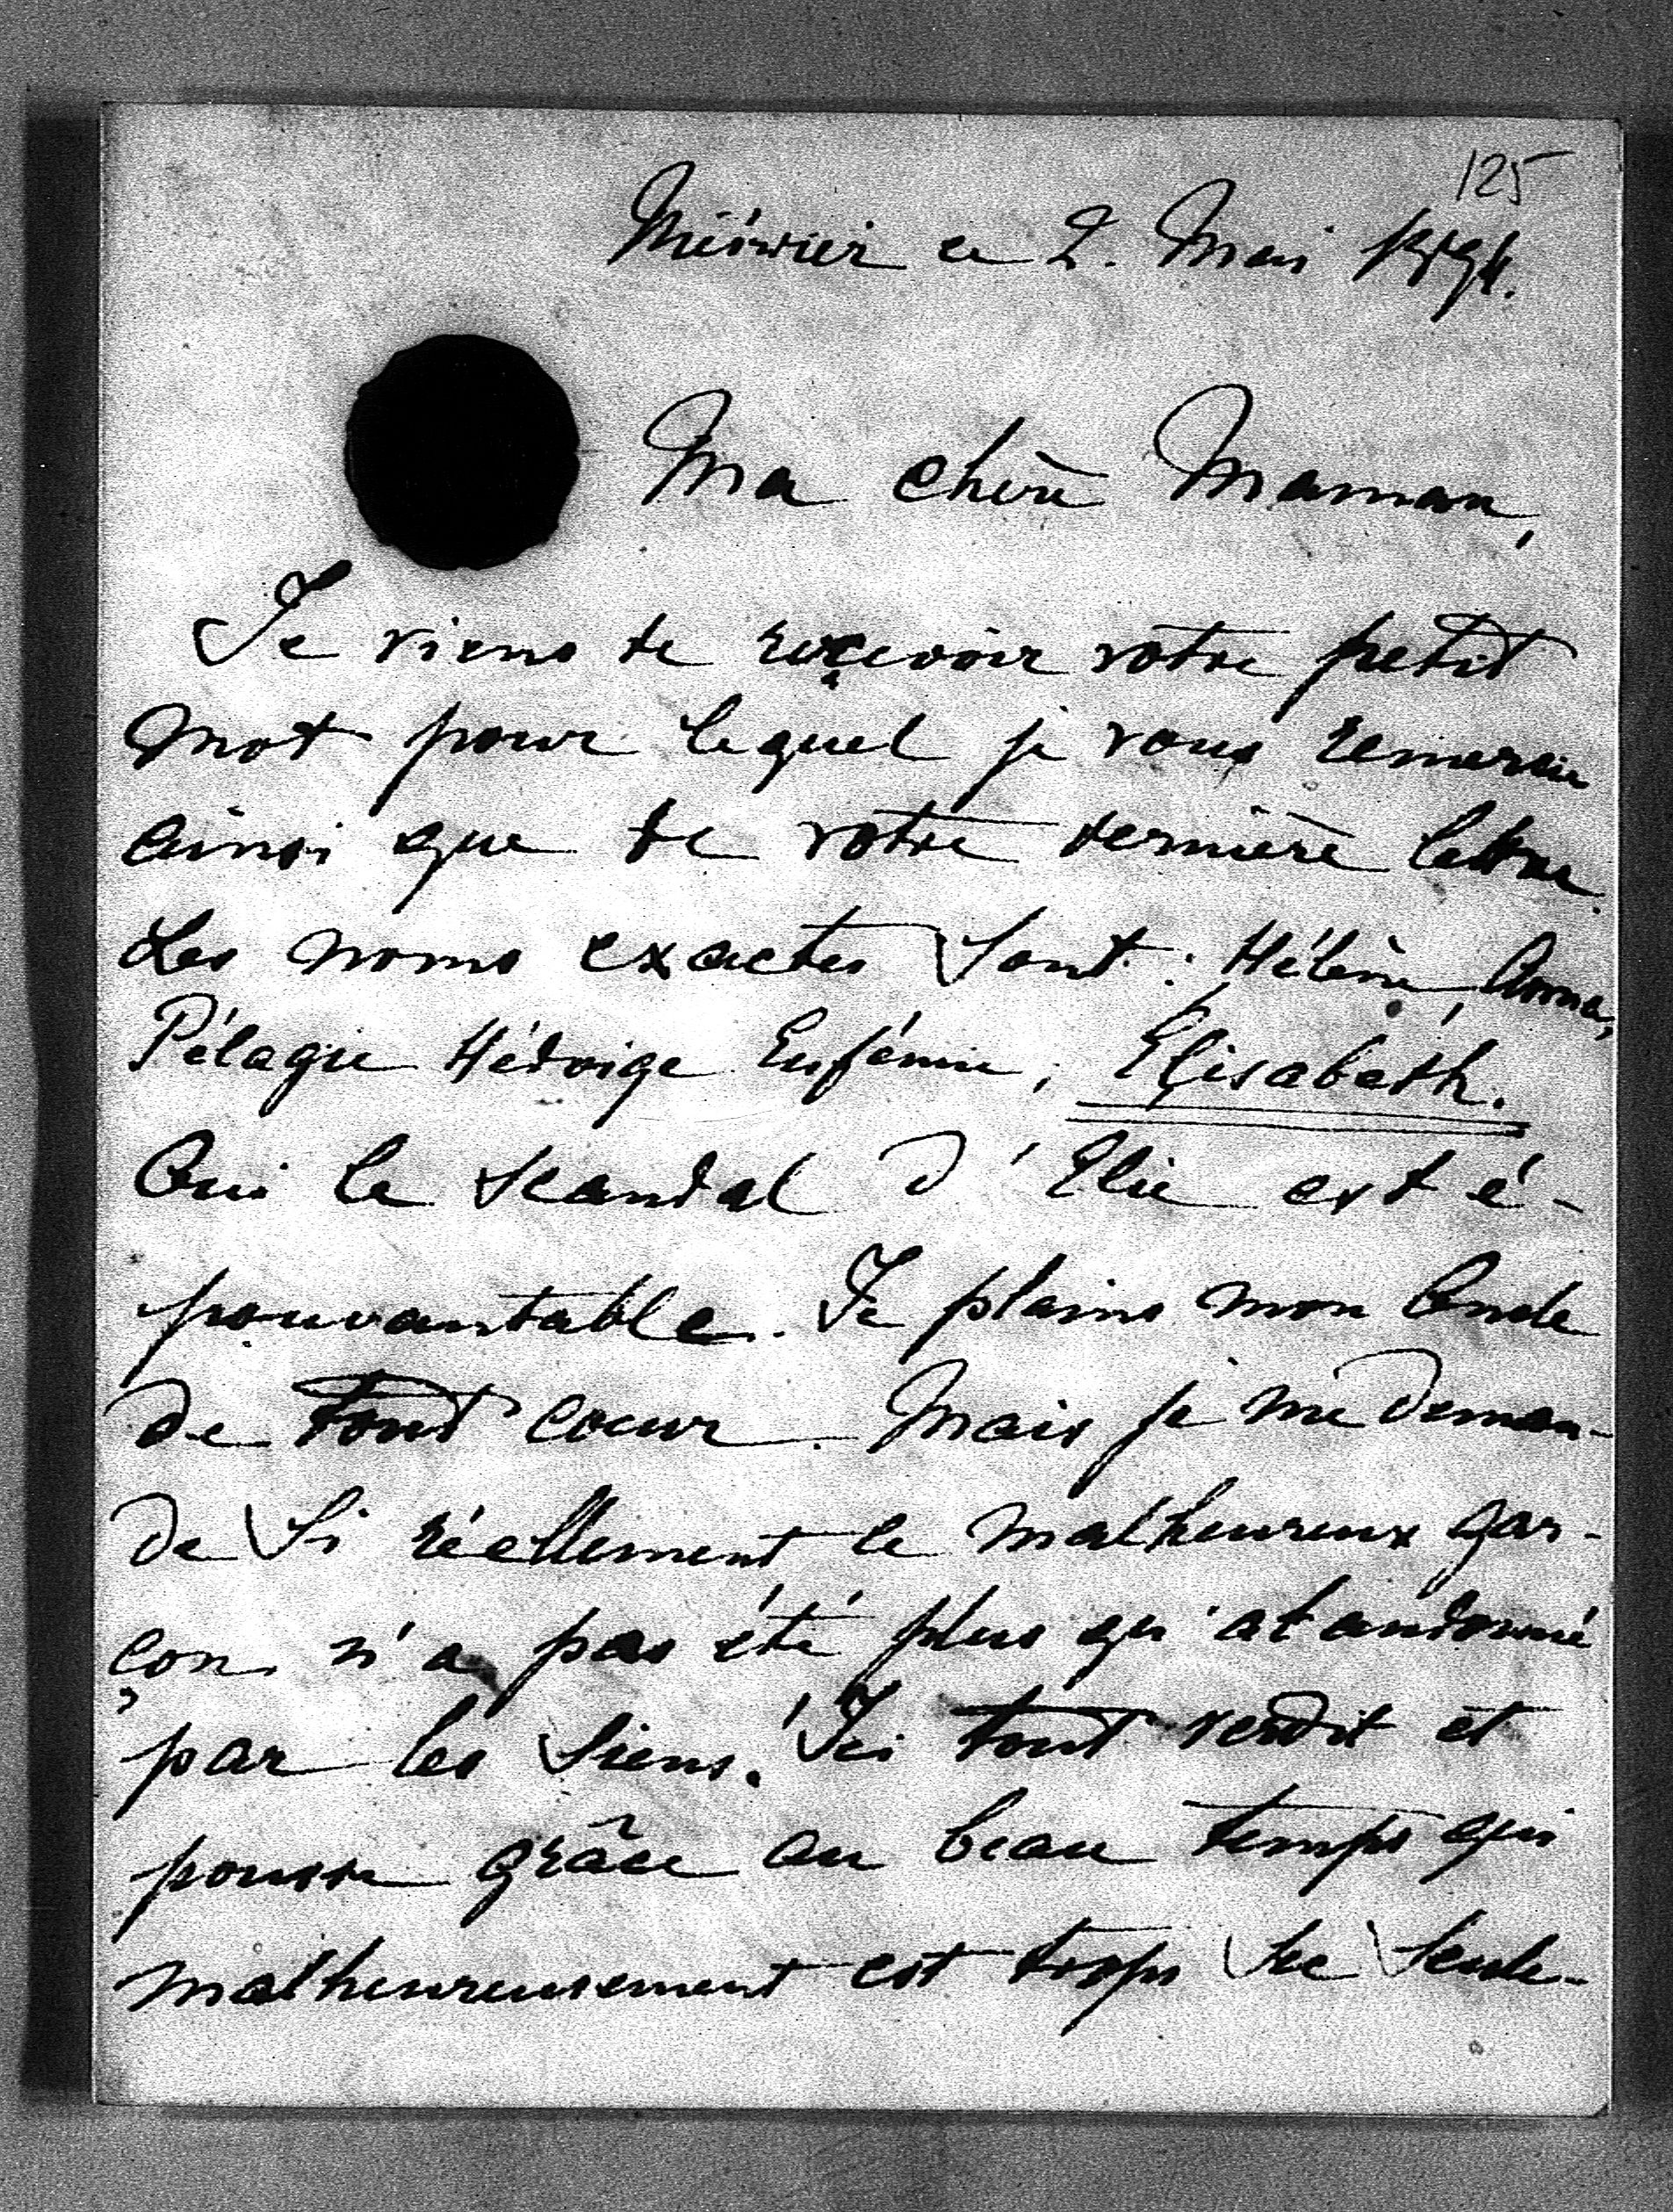 125
Nieśwież ce 2. Mai 1894.
Ma chère Maman,
Je viens de reçevoir votre petit
mot pour lequel je vous remercie
ainsi que de votre dernière lettre.
Les noms exactes sont: Hélène, Anna,
Pélagie Hédvige Eufémie, Elisabeth.
Oui le scandal d'Elie est é-
pouvantable. Je plains mon Oncle
de tout coeur. Mais je me deman-
de si réellement le malheureux gar-
çon n'a pas été plus qu'abandonné
par les siens. Ici tout verdit et
pousse grâce au beau temps qui
malheureusement est trop sec seule-